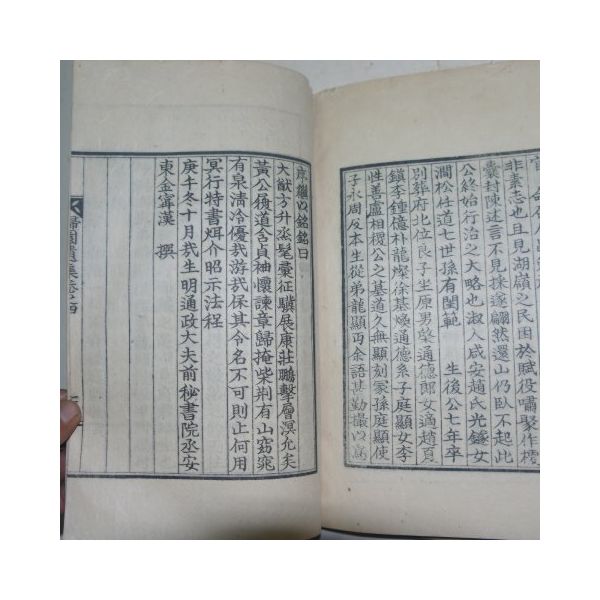 非素志也且見湖嶺之民困於賦役嘯聚作櫌
囊封陳述言不見採遂翩然還山仍臥不起此
公終始行治之大略也淑人咸安趙氏光鎹女
澗松任道七世孫有閨範 生後公七年卒
別葬府北位良子坐原男啓通德郎女適趙頁
鎭李鍾億朴龍燦徐基煥通德系子庭顯女李
性善盧相稷公之墓道久無顯刻冢孫庭顯使
子永周反本生從弟龍顯丙余語甚勤撮以爲
序繼以銘銘曰
大猷方升丞髦彙征驥展康莊鵬擊層溟允矣
黃公後道含貞袖懷諫章歸掩柴荆有山窈窕
有泉淸冷優哉游哉保其令名不可則止何用
冥行特書烓介昭示法程
庚午冬十月哉生明通政大夫前秘書院丞安
東金寗漢 撰
歸園遺集卷之四